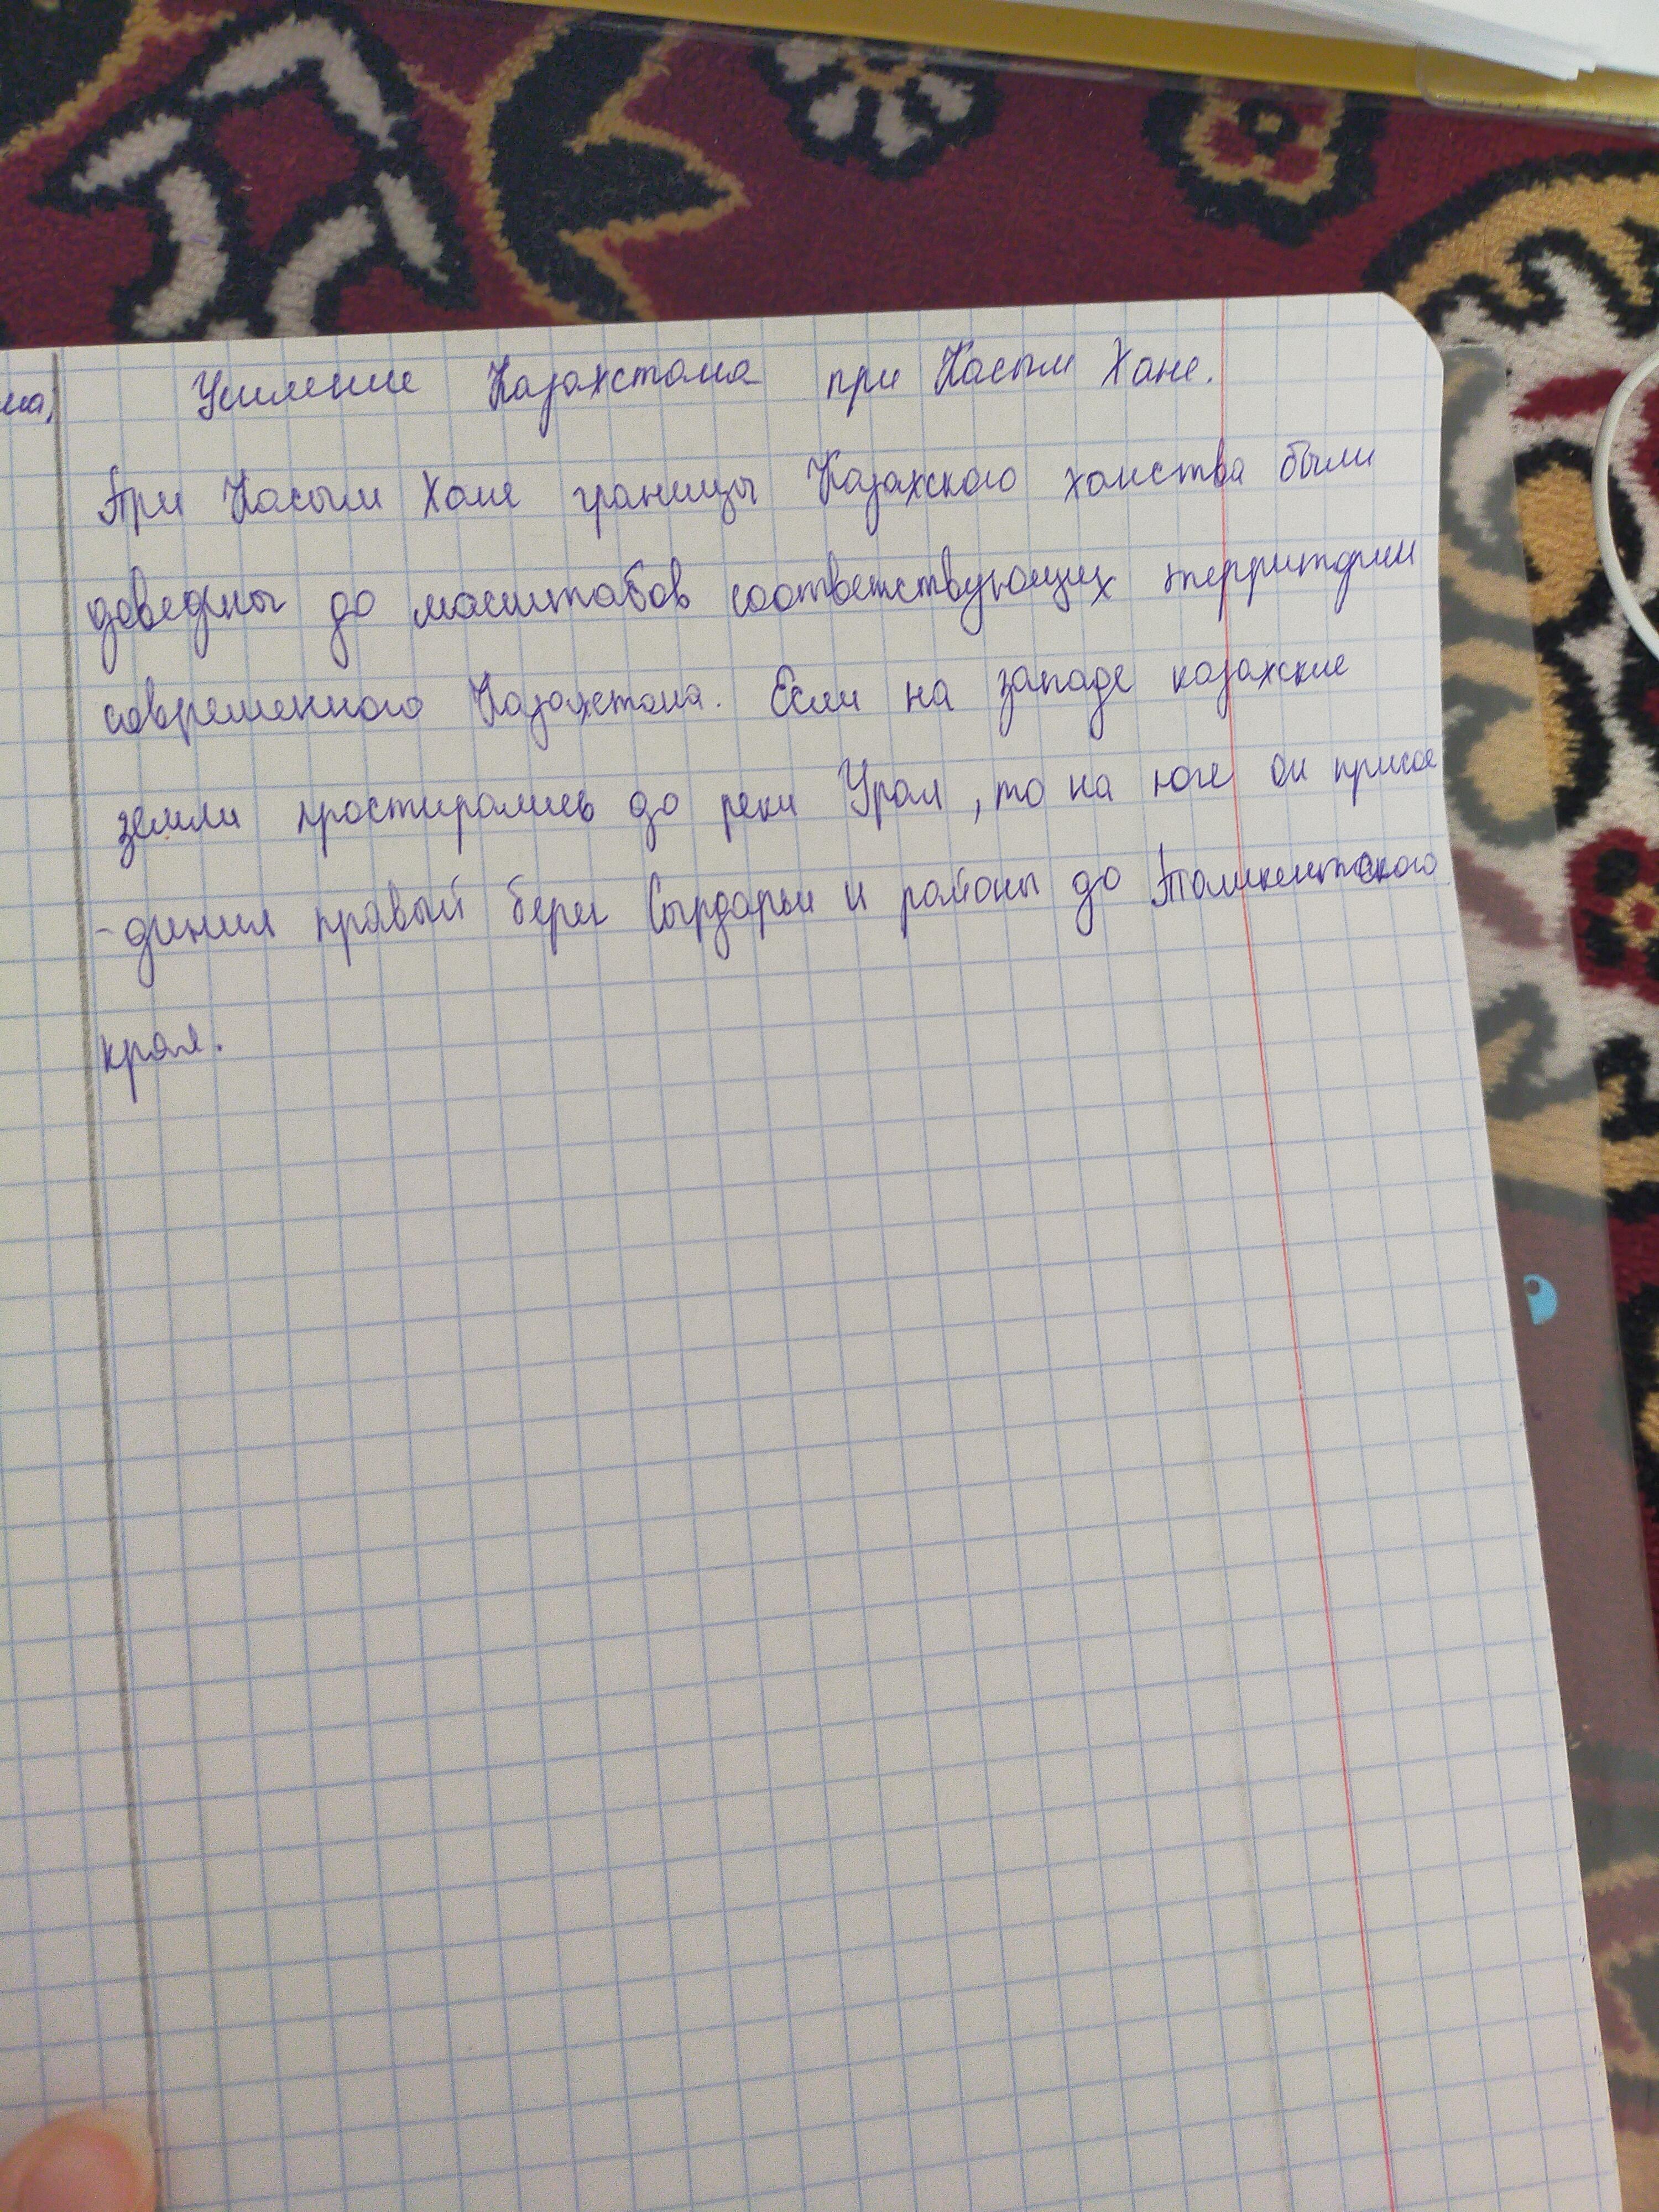 Усиление Казахстана при Касым Хане.
При Касым Хане границы Казахского ханства были
доведены до масштабов соответствующих территории
современного Казахстана. Если на западе казахские
земли простирались до реки Урал, то на юге он присое
-динил правый берег Сырдарьи и районы до Ташкентского
края.